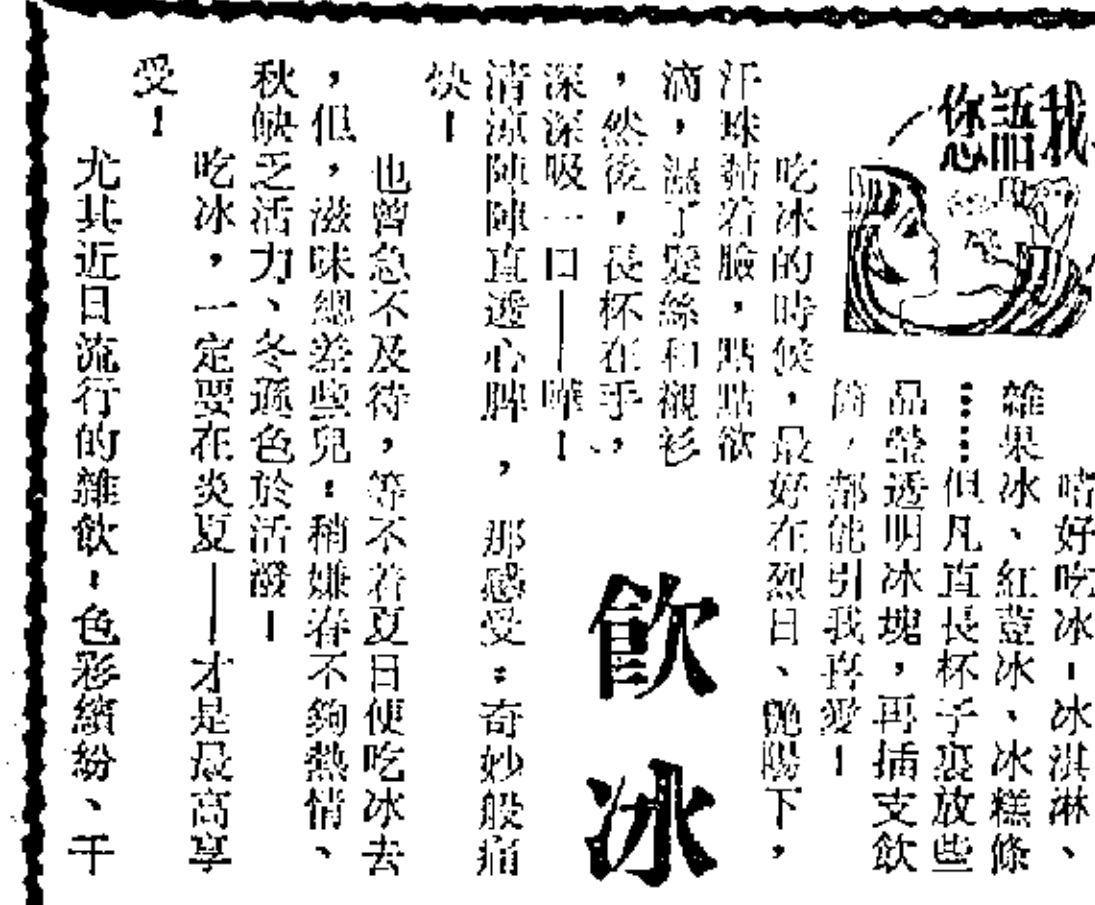 我語您
飲冰
嗜好吃冰！冰淇淋、
雜果冰、紅荳冰、冰糕條
……但凡直長杯子裏放些
晶瑩透明冰塊，再插支飲
筒，都能引我喜愛！
吃冰的時候，最好在烈日、艷陽下，
汗珠黏着臉，點點欲
滴，濕了髮絲和襯衫
，然後，長杯在手，
深深吸一口——嘩！
清涼陣陣直透心脾，那感受：奇妙般痛
快！
也曾急不及待，等不着夏日便吃冰去
，但，滋味總差些兒：稍嫌春不夠熱情、
秋缺乏活力、冬遜色於活潑！
吃冰，一定要在炎夏——才是最高享
受！
尤其近日流行的雜飲：色彩繽紛、干